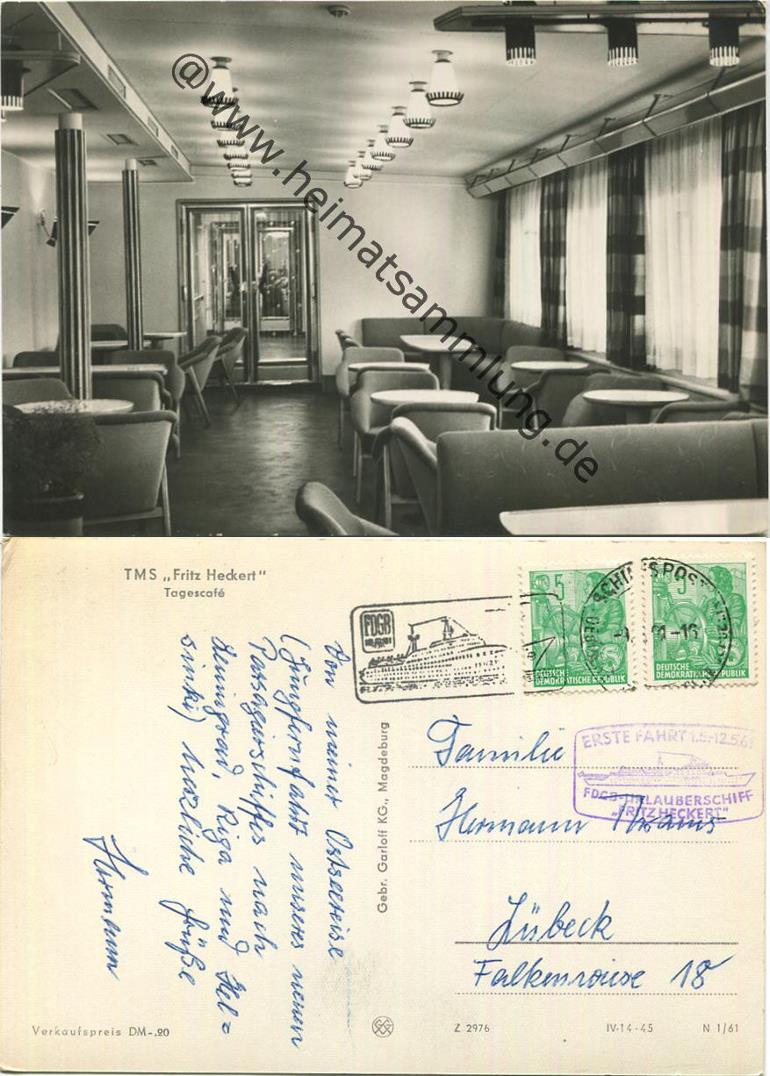 @www.heimatsammlung.de
TMS „Fritz Heckert"
Tagescafé
FDGB
5
5
SCHIFFSPOST
-16
DEUTSCHE
DEMOKRATISCHE REPUBLIK
DEUTSCHE
DEMOKRATISCHE REPUBLIK
ERSTE FAHRT 1.5.-12.5.61
FDGB-URLAUBERSCHIFF
„FRITZ HECKERT"
Von meiner Ostseereise
(Jungfernfahrt unseres neuen
Passagierschiffes nach
Leningrad, Riga und Hel=
sinki) herzliche Grüße
Hermann
Gebr. Garloff KG., Magdeburg
Familie
Hermann
Lübeck
18
Verkaufspreis DM-,20
Z 2976
IV-14-45
N 1/61